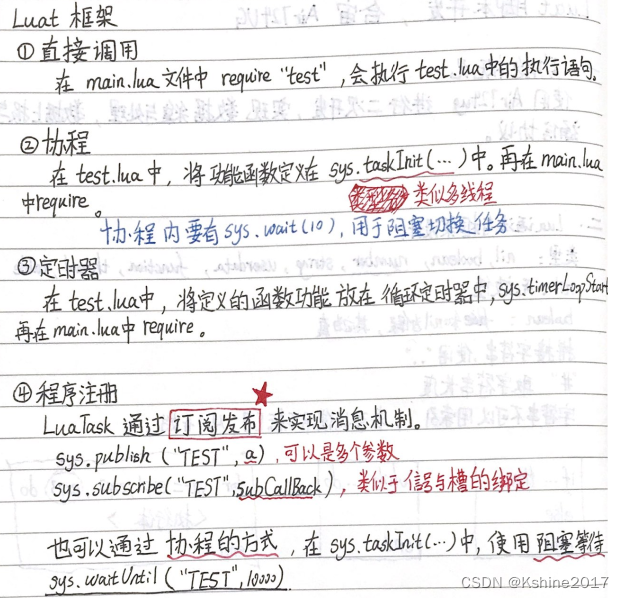 Luat 框架
①直接调用
在 main.lua 文件中 require "test", 会执行 test.lua中的执行语句。
②协程
在 test.lua 中, 将功能函数定义在 sys.taskInit(…)中。再在 main.lua
中require。
类似多线程
协程内要有sys.wait(10), 用于阻塞切换任务
③定时器
在 test.lua中, 将定义的函数功能 放在 循环定时器中, sys.timerLoopStart
再在main.lua中 require。
④程序注册
LuaTask 通过 订阅发布 来实现消息机制。
sys.publish ("TEST", a), 可以是多个参数
sys.subscribe("TEST", subCallBack), 类似于信号与槽的绑定
也可以通过 协程的方式, 在 sys.taskInit(…)中, 使用 阻塞等待
sys.waitUntil ("TEST", 10000)
CSDN @Kshine2017